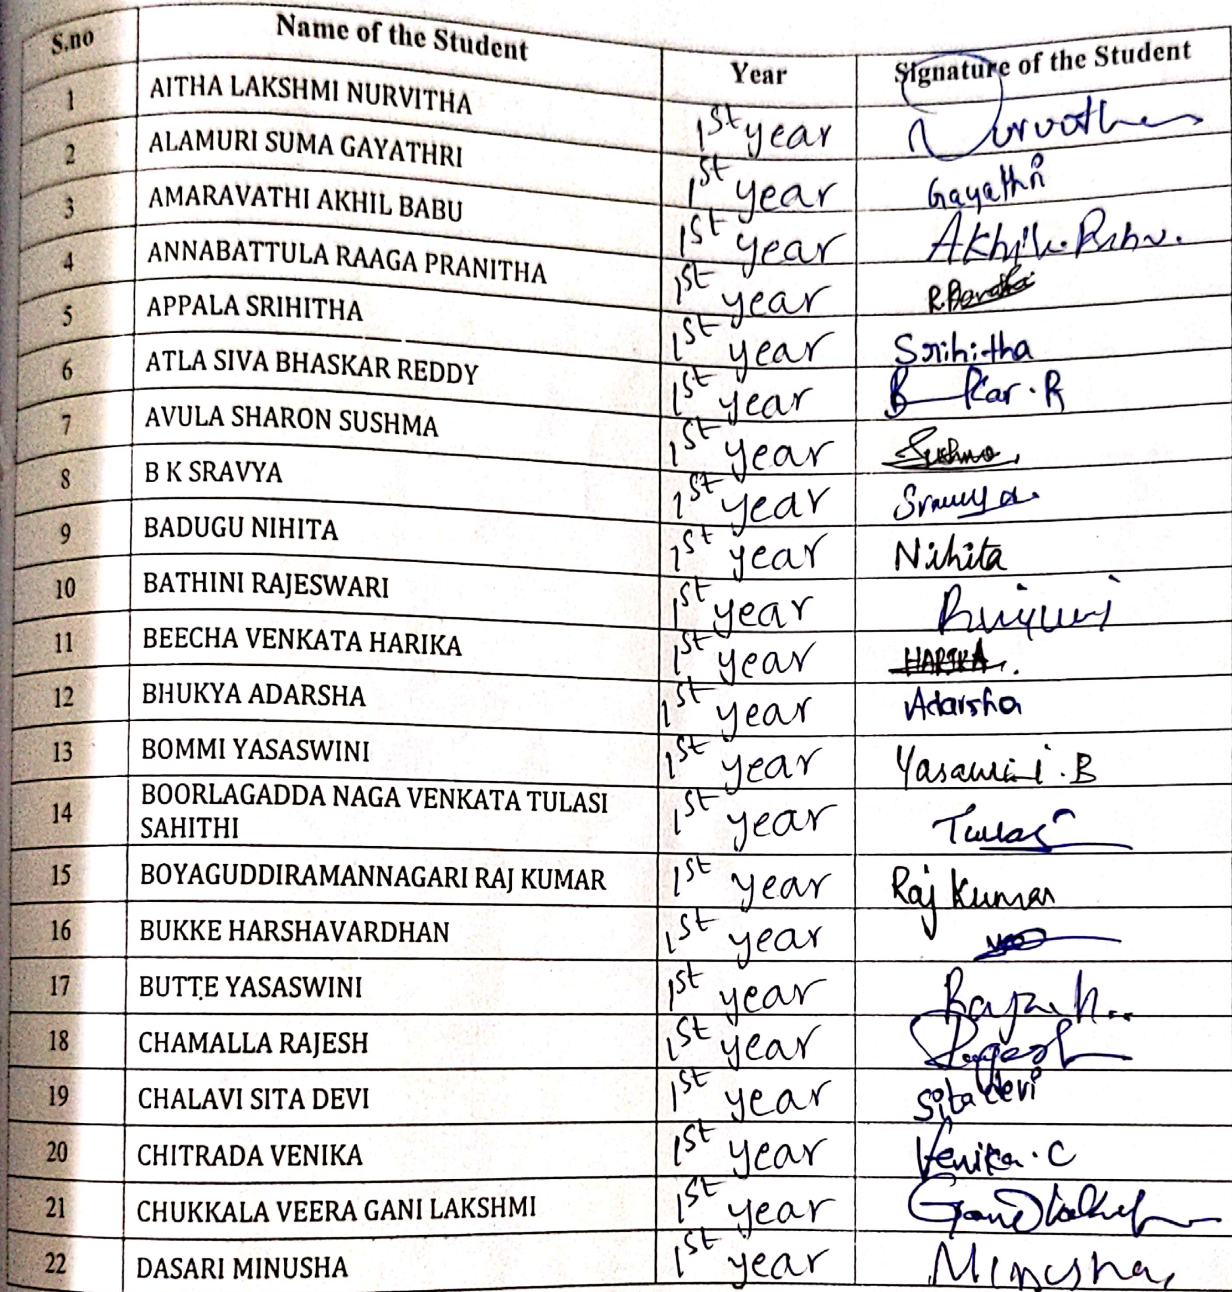 S.no Name of the Student Year Signature of the Student
1 AITHA LAKSHMI NURVITHA 1st year Nurvitha
2 ALAMURI SUMA GAYATHRI 1st year Gayathri
3 AMARAVATHI AKHIL BABU 1st year Akhil. Babu.
4 ANNABATTULA RAAGA PRANITHA 1st year
5 APPALA SRIHITHA 1st year Srihitha
6 ATLA SIVA BHASKAR REDDY 1st year
7 AVULA SHARON SUSHMA 1st year Sushma
8 B K SRAVYA 1st year Sravya
9 BADUGU NIHITA 1st year Nihita
10 BATHINI RAJESWARI 1st year
11 BEECHA VENKATA HARIKA 1st year HARIKA.
12 BHUKYA ADARSHA 1st year Adarsha
13 BOMMI YASASWINI 1st year Yasawini.B
14 BOORLAGADDA NAGA VENKATA TULASI
SAHITHI 1st year Tulasi
15 BOYAGUDDIRAMANNAGARI RAJ KUMAR 1st year Raj Kumar
16 BUKKE HARSHAVARDHAN 1st year
17 BUTTE YASASWINI 1st year
18 CHAMALLA RAJESH 1st year Rajesh
19 CHALAVI SITA DEVI 1st year Sita devi
20 CHITRADA VENIKA 1st year Venika.C
21 CHUKKALA VEERA GANI LAKSHMI 1st year
22 DASARI MINUSHA 1st year Minusha